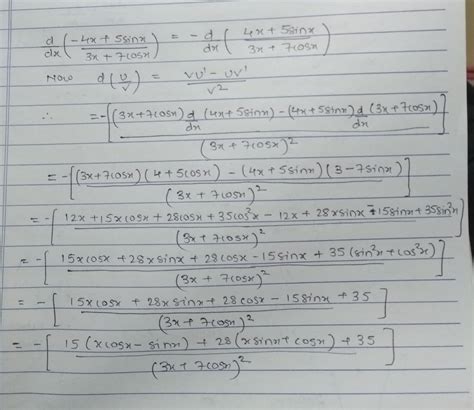 d/dx (-4x + 5sinx / 3x + 7cosx) = - d/dx ( 4x + 5sinx / 3x + 7cosx )
Now d(u/v) = vu' - uv' / v²
∴ = -[(3x+7cosx) d/dx (4x + 5sinx) - (4x + 5sinx) d/dx (3x + 7cosx) / (3x + 7cosx)²]
= -[(3x+7cosx)(4 + 5cosx) - (4x + 5sinx)(3 - 7sinx) / (3x + 7cosx)²]
= -[12x + 15xcosx + 28cosx + 35cos²x - 12x + 28xsinx - 15sinx + 35sin²x / (3x + 7cosx)²]
= -[15xcosx + 28xsinx + 28cosx - 15sinx + 35(sin²x + cos²x) / (3x + 7cosx)²]
= -[15xcosx + 28xsinx + 28cosx - 15sinx + 35 / (3x + 7cosx)²]
= -[15(xcosx - sinx) + 28(xsinx + cosx) + 35 / (3x + 7cosx)²]